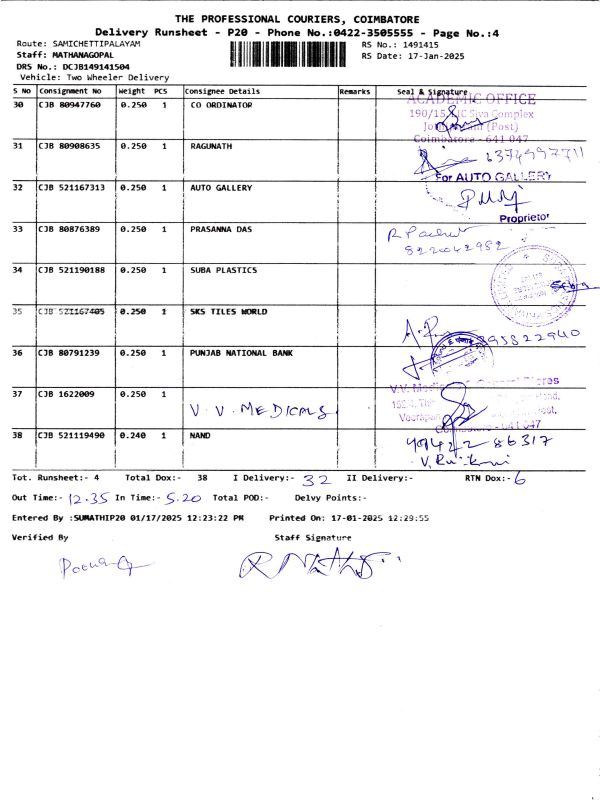 THE PROFESSIONAL COURIERS, COIMBATORE
Delivery Runsheet - P20 - Phone No.:0422-3505555 - Page No.:4
Route: SAMICHETTIPALAYAM RS No.: 1491415
Staff: MATHANAGOPAL RS Date: 17-Jan-2025
DRS No.: DCJB149141504
Vehicle: Two Wheeler Delivery
S No Consignment No Weight PCS Consignee Details Remarks Seal & Signature
30 CJB 80947760 0.250 1 CO ORDINATOR ACADEMIC OFFICE
Siva Complex
(Post)
Coimbatore - 641 047
31 CJB 80908635 0.250 1 RAGUNATH 6374997711
For AUTO GALLERY
32 CJB 521167313 0.250 1 AUTO GALLERY
Proprietor
33 CJB 80876389 0.250 1 PRASANNA DAS
8220042952
34 CJB 521190188 0.250 1 SUBA PLASTICS
35 CJB 521167405 0.250 1 SKS TILES WORLD
95822940
36 CJB 80791239 0.250 1 PUNJAB NATIONAL BANK
37 CJB 1622009 0.250 1 V.V. MEDICALS
641 047
38 CJB 521119490 0.240 1 NAND
Tot. Runsheet:- 4 Total Dox:- 38 I Delivery:- 32 II Delivery:- RTN Dox:- 6
Out Time:- 12.35 In Time:- 5.20 Total POD:- Delvy Points:-
Entered By :SUMATHIP20 01/17/2025 12:23:22 PM Printed On: 17-01-2025 12:29:55
Verified By Staff Signature